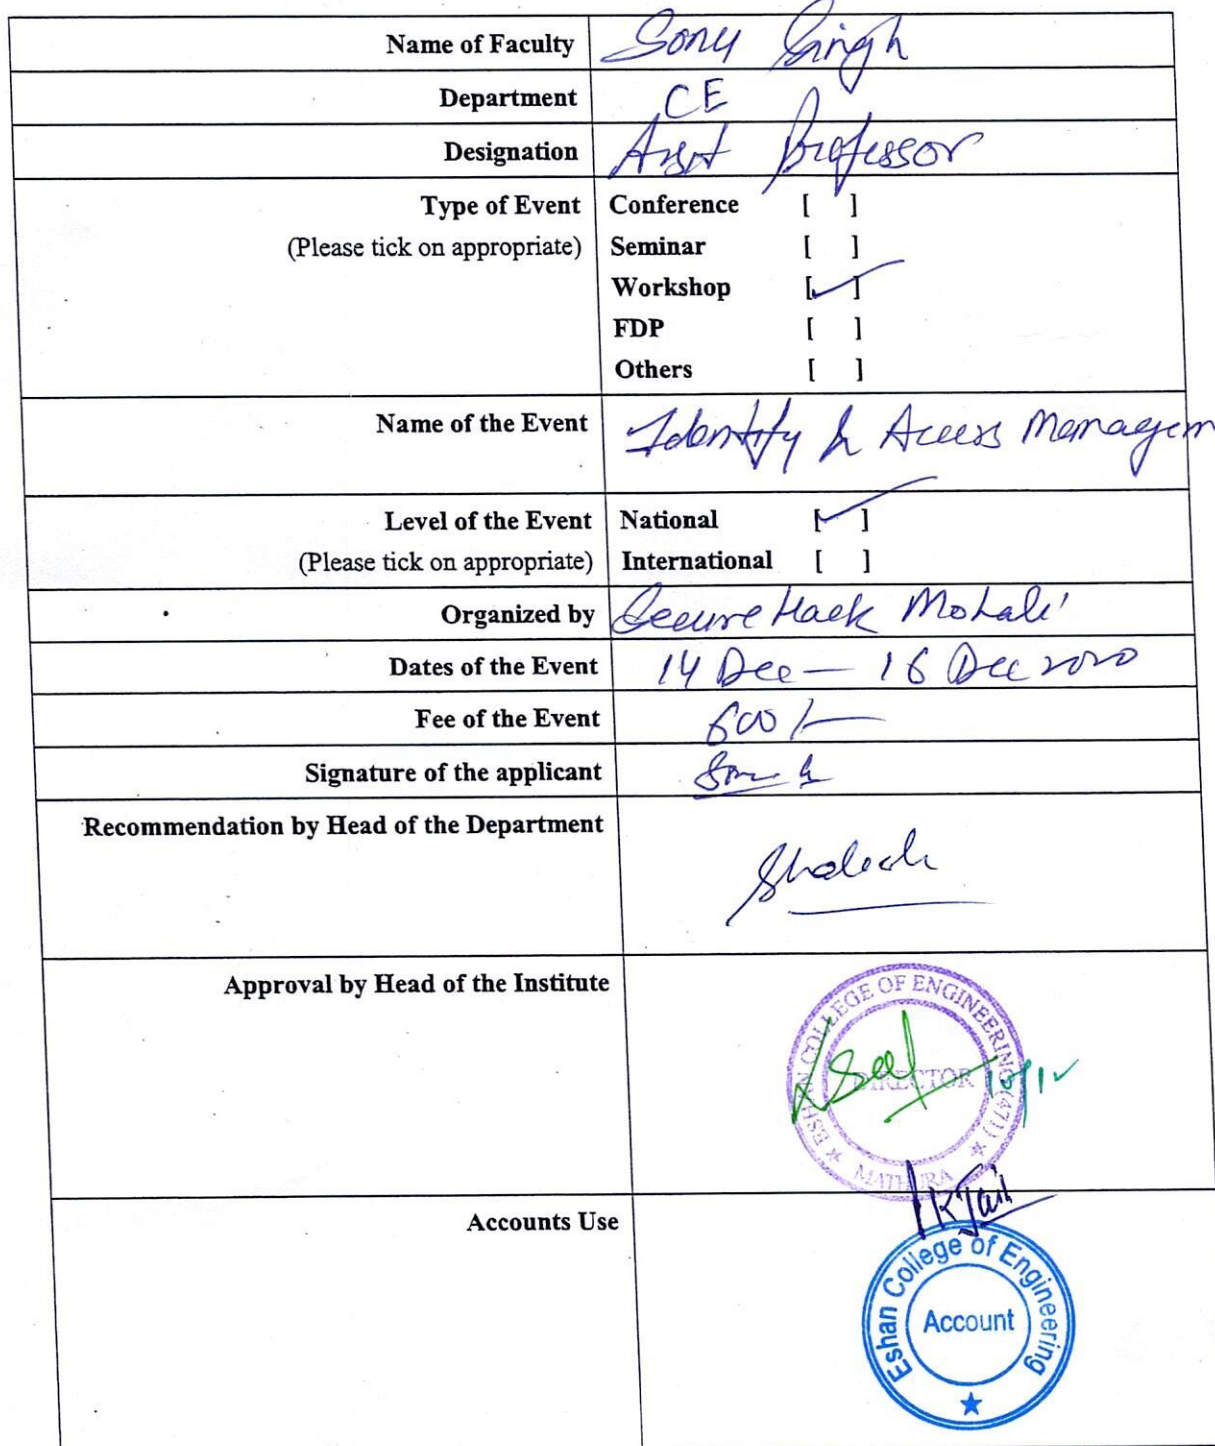 Name of Faculty Sonu Singh
Department CE
Designation Asst Professor
Type of Event Conference [ ]
(Please tick on appropriate) Seminar [ ]
Workshop [✓]
FDP [ ]
Others [ ]
Name of the Event Identity & Access Managem
Level of the Event National [✓]
(Please tick on appropriate) International [ ]
Organized by Secure Hack Mohali
Dates of the Event 14 Dec — 16 Dec 2020
Fee of the Event 600/—
Signature of the applicant
Recommendation by Head of the Department
Approval by Head of the Institute
ESHAN COLLEGE OF ENGINEERING (471)
DIRECTOR
MATHURA
Accounts Use
Eshan College of Engineering
Account